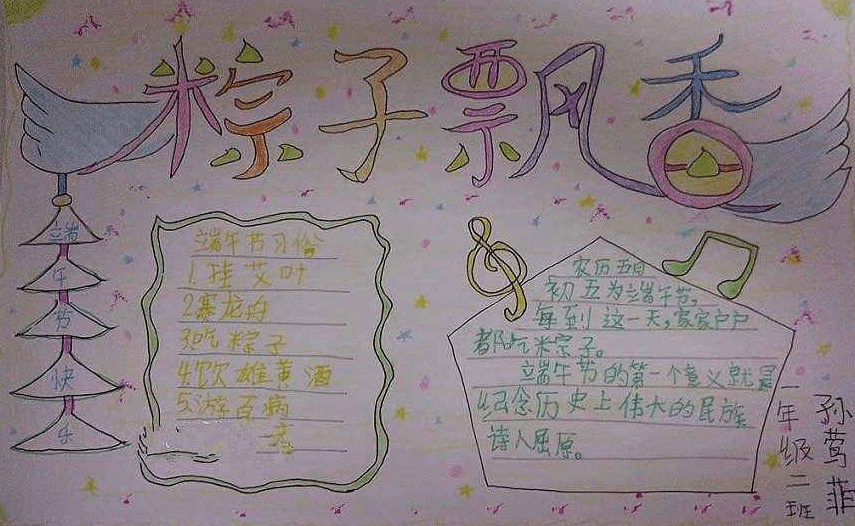 粽子飘香
端午节快乐
端午节习俗
1.挂艾叶
2赛龙舟
3吃粽子
4饮雄黄酒
5.游百病
农历五月
初五为端午节,
每到这一天,家家户户
都吃粽子。
端午节的第一个意义就是
纪念历史上伟大的民族
诗人屈原。
一年级二班
孙莺菲